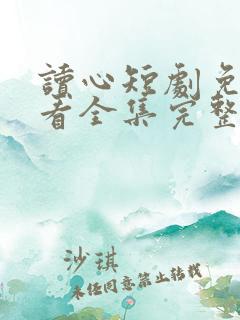 讀心短劇免
看全集完整
沙琪
未經同意禁止轉載